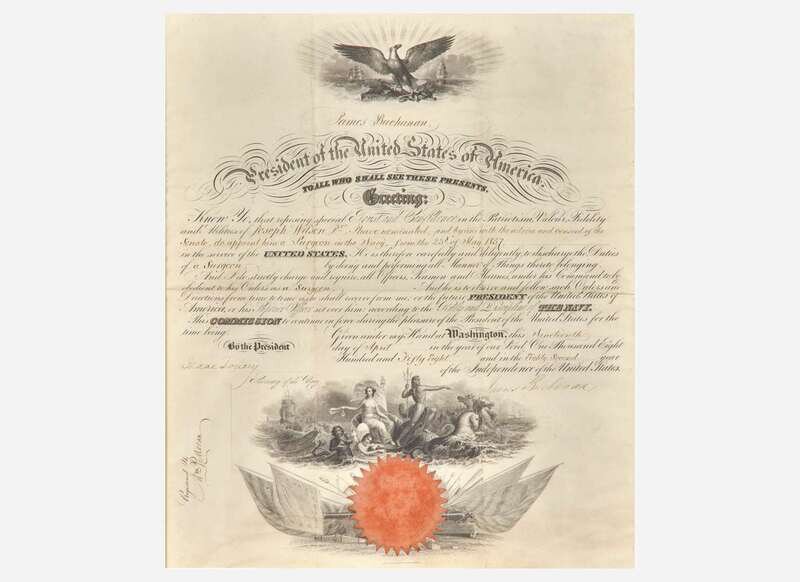 James Buchanan,
President of the United States of America,
TO ALL WHO SHALL SEE THESE PRESENTS,
Greeting:
Know Ye, that reposing special Trust and Confidence in the Patriotism, Valour, Fidelity
and Abilities of Joseph Wilson Jr. I have nominated, and by and with the advice and consent of the
Senate, do appoint him a Surgeon in the Navy, from the 23d of May 1857
in the service of the UNITED STATES. He is therefore carefully and diligently to discharge the Duties
of a Surgeon by doing and performing all Manner of Things thereto belonging.
And I do strictly charge and require all Officers, Seamen and Marines, under his Command to be
obedient to his Orders as a Surgeon And he is to observe and follow such Orders and
Directions from time to time as he shall receive from me, or the future PRESIDENT of the United States of
America, or his Superior Officer set over him, according to the Rules and Discipline of THE NAVY.
This COMMISSION to continue in force during the pleasure of the President of the United States for the
time being.
Given under my Hand at Washington, this Nineteenth
day of April in the year of our Lord One Thousand Eight
By the President
Hundred and Fifty Eight and in the Eighty Second year
of the Independence of the United States.
Isaac Toucey
James Buchanan
Secretary of the Navy
Registered